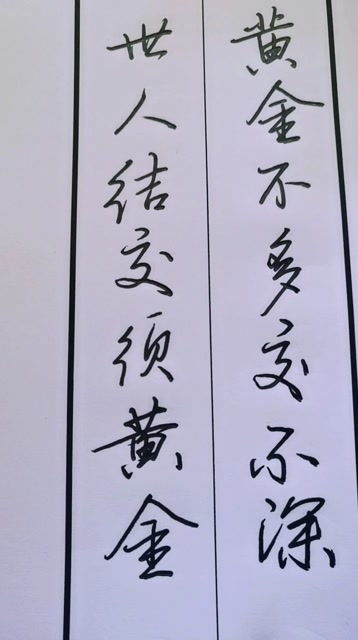 世人结交须黄金
黄金不多交不深